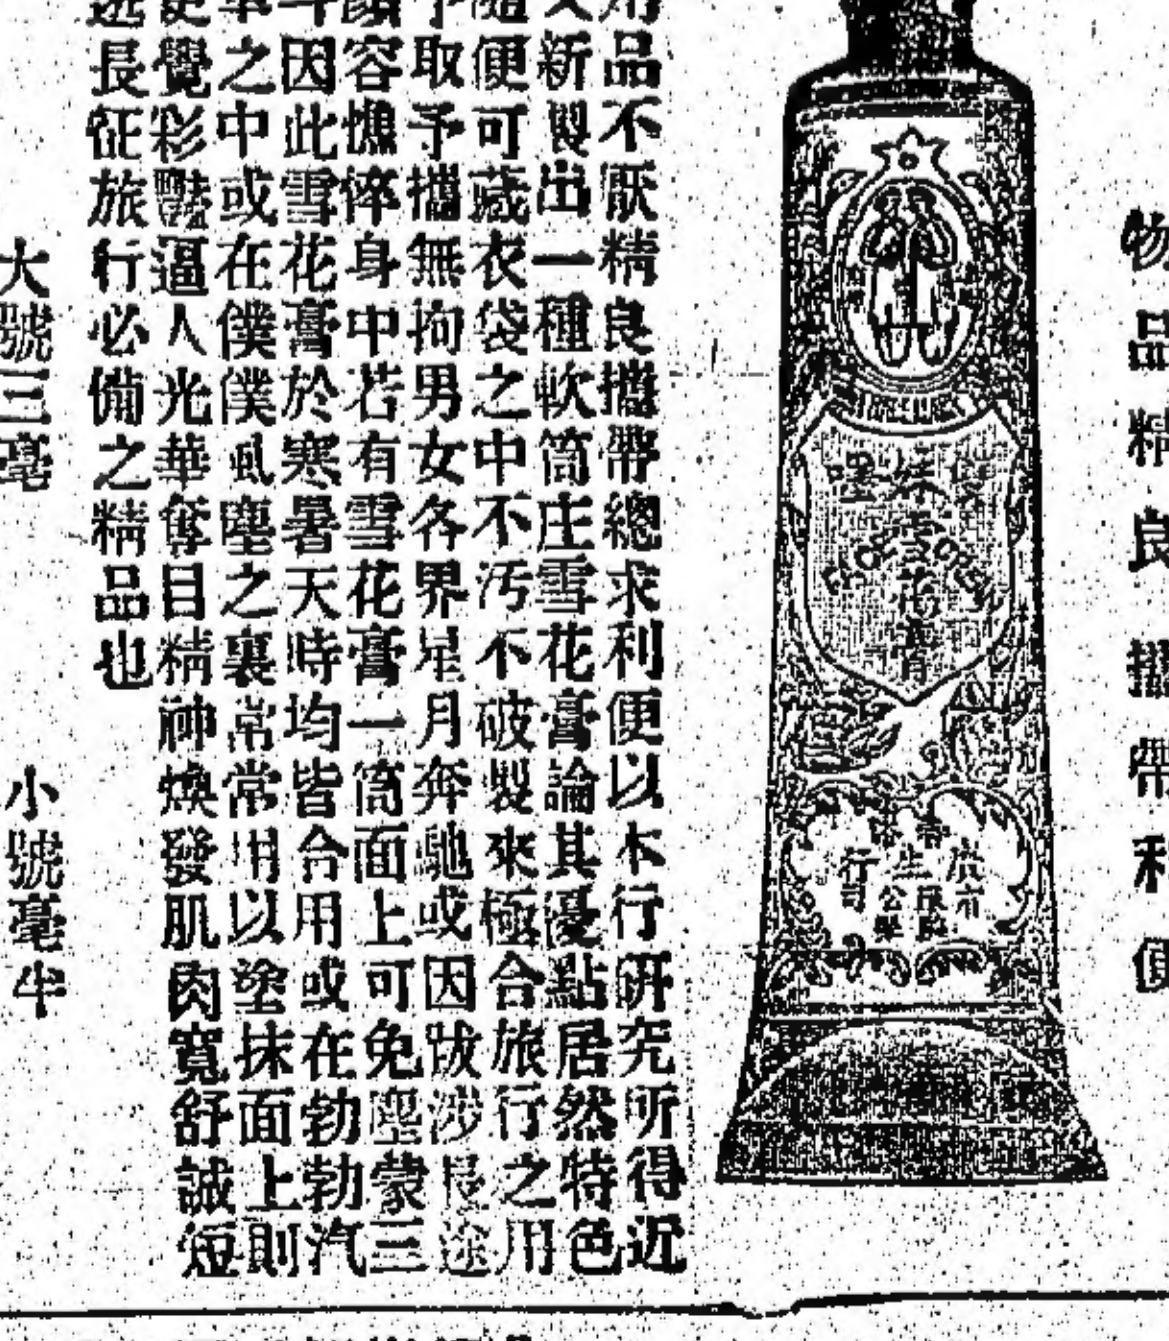 物品精良攜帶利便
雙妹嚜
雪花膏
用品不厭精良攜帶總求利便以本行研究所得近
又新製出一種軟筒庄雪花膏論其優點居然特色
隨便可藏衣袋之中不汚不破製來極合旅行之用
予取予攜無拘男女各界星月奔馳或因跋涉長途
顏容憔悴身中若有雪花膏一筒面上可免塵蒙三
斗因此雪花膏於寒暑天時均皆合用或在勃勃汽
車之中或在僕僕風塵之裏常常用以塗抹面上則
更覺彩豔逼人光華奪目精神煥發肌肉寬舒誠短
途長征旅行必備之精品也
大號三毫 小號毫半